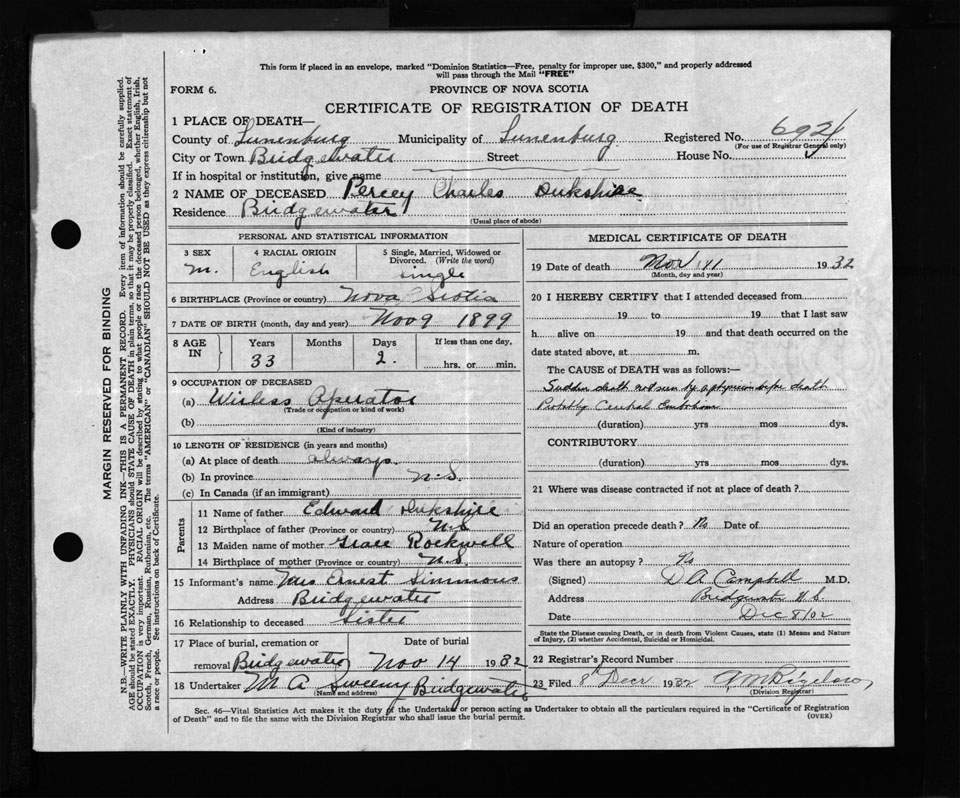 This form if placed in an envelope, marked "Dominion Statistics—Free, penalty for improper use, $300," and properly addressed
will pass through the Mail "FREE"
FORM 6.
PROVINCE OF NOVA SCOTIA
CERTIFICATE OF REGISTRATION OF DEATH
1 PLACE OF DEATH—
County of Lunenburg Municipality of Lunenburg Registered No. 6924
(For use of Registrar General only)
City or Town Bridgewater Street House No.
If in hospital or institution, give name
2 NAME OF DECEASED Percey Charles Dukshire
Residence Bridgewater
(Usual place of abode)
PERSONAL AND STATISTICAL INFORMATION
3 SEX 4 RACIAL ORIGIN 5 Single, Married, Widowed or
Divorced. (Write the word)
M. English single
6 BIRTHPLACE (Province or country) Nova Scotia
7 DATE OF BIRTH (month, day and year) Nov 9 1899
8 AGE IN Years Months Days If less than one day,
33 2. hrs. or min.
9 OCCUPATION OF DECEASED
(a) Wirless Operator
(Trade or occupation or kind of work)
(b)
(Kind of industry)
10 LENGTH OF RESIDENCE (in years and months)
(a) At place of death always.
(b) In province N.S.
(c) In Canada (if an immigrant)
Parents
11 Name of father Edward Dukshire
12 Birthplace of father (Province or country) N.S
13 Maiden name of mother Grace Rockwell
14 Birthplace of mother (Province or country) N.S.
15 Informant's name Mrs Ernest Simmons
Address Bridgewater
16 Relationship to deceased Sister
17 Place of burial, cremation or Date of burial
removal Bridgewater Nov 14 1932
18 Undertaker M A Sweeny Bridgewater
(Name and address)
MEDICAL CERTIFICATE OF DEATH
19 Date of death Nov 11 1932
(Month, day and year)
20 I HEREBY CERTIFY that I attended deceased from
19 to 19 that I last saw
h alive on 19 and that death occurred on the
date stated above, at m.
The CAUSE of DEATH was as follows:—
Sudden death not seen by a physician before death
Probably Cerebral Embolism
(duration) yrs mos dys.
CONTRIBUTORY
(duration) yrs mos dys.
21 Where was disease contracted if not at place of death?
Did an operation precede death? No Date of
Nature of operation
Was there an autopsy? No
(Signed) D A Campbell M.D.
Address Bridgewater N.S.
Date Dec 8/02
State the Disease causing Death, or in death from Violent Causes, state (1) Means and Nature
of Injury, (2) whether Accidental, Suicidal or Homicidal.
22 Registrar's Record Number
23 Filed 8th Decr 1932
(Division Registrar)
Sec. 46—Vital Statistics Act makes it the duty of the Undertaker or person acting as Undertaker to obtain all the particulars required in the "Certificate of Registration
of Death" and to file the same with the Division Registrar who shall issue the burial permit.
(OVER)
MARGIN RESERVED FOR BINDING
N.B.—WRITE PLAINLY WITH UNFADING INK—THIS IS A PERMANENT RECORD. Every item of information should be carefully supplied.
AGE should be stated EXACTLY. PHYSICIANS should STATE CAUSE OF DEATH in plain terms, so that it may be properly classified. Exact statement of
OCCUPATION is very important. RACIAL ORIGIN will be described by stating to what people or race the deceased person belonged, whether English, Irish,
Scotch, French, German, Russian, Ruthenian, etc. The terms "AMERICAN" or "CANADIAN" SHOULD NOT BE USED as they express citizenship but not
a race or people. See instructions on back of Certificate.